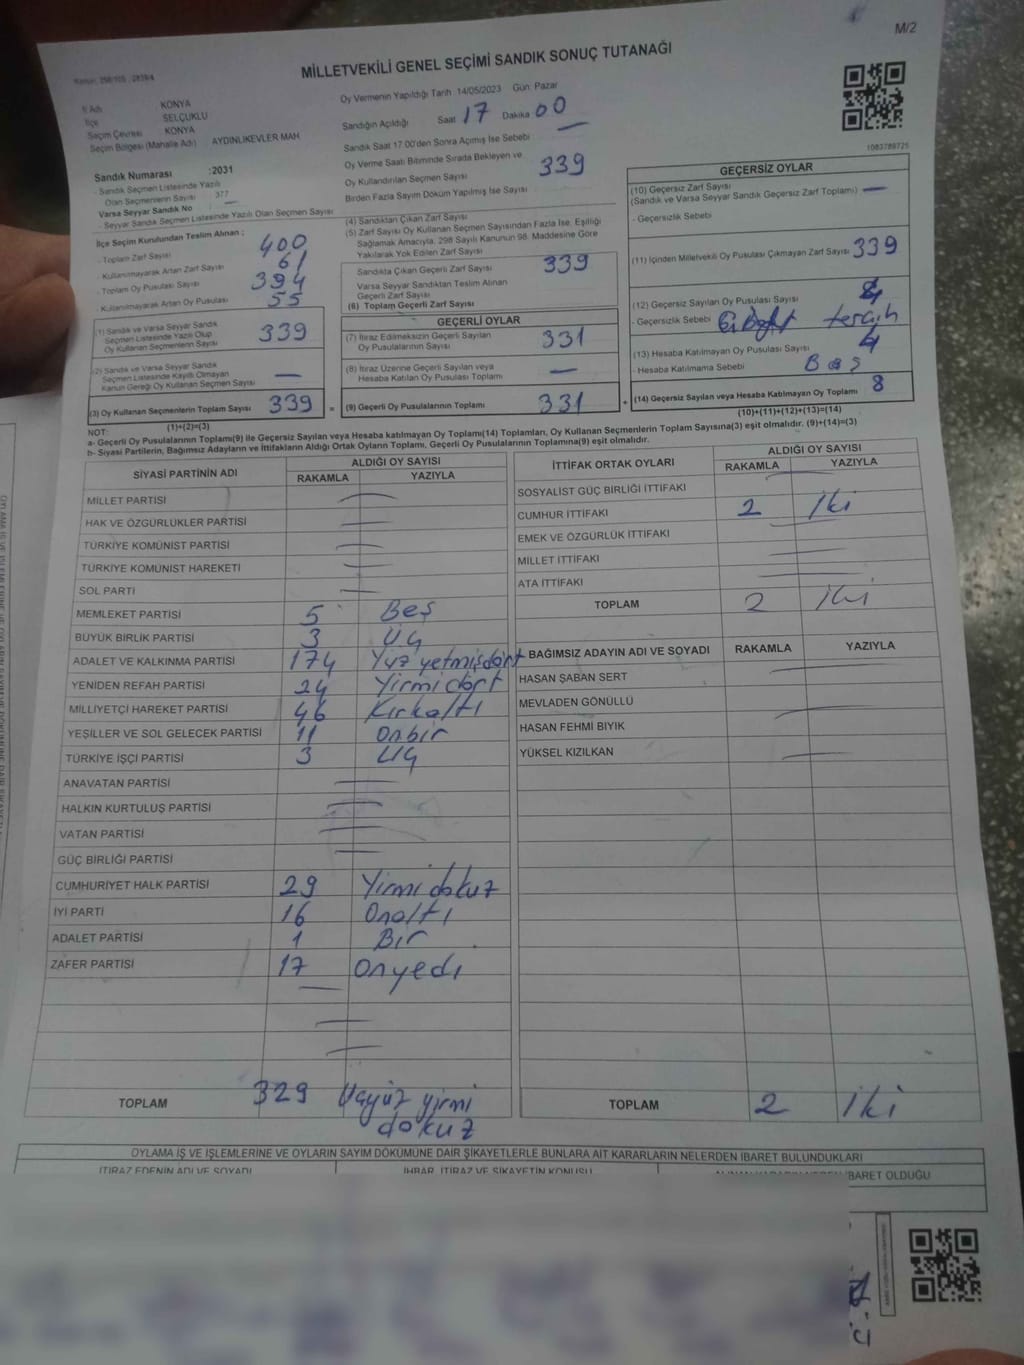 M/2
MİLLETVEKİLİ GENEL SEÇİMİ SANDIK SONUÇ TUTANAĞI
İl Adı KONYA
İlçe SELÇUKLU
Seçim Çevresi KONYA
Seçim Bölgesi (Mahalle Adı) AYDINLIKEVLER MAH
Sandık Numarası :2031
- Sandık Seçmen Listesinde Yazılı
Olan Seçmenlerin Sayısı 377
Varsa Seyyar Sandık No —
- Seyyar Sandık Seçmen Listesinde Yazılı Olan Seçmen Sayısı
İlçe Seçim Kurulundan Teslim Alınan ;
- Toplam Zarf Sayısı 400
- Kullanılmayarak Artan Zarf Sayısı 61
- Toplam Oy Pusulası Sayısı 394
- Kullanılmayarak Artan Oy Pusulası 55
(1) Sandık ve Varsa Seyyar Sandık
Seçmen Listesinde Yazılı Olup
Oy Kullanan Seçmenlerin Sayısı 339
(2) Sandık ve Varsa Seyyar Sandık
Seçmen Listesinde Kayıtlı Olmayan
Kanun Gereği Oy Kullanan Seçmen Sayısı —
(3) Oy Kullanan Seçmenlerin Toplam Sayısı 339 =
(1)+(2)=(3)
Oy Vermenin Yapıldığı Tarih :14/05/2023 Gün: Pazar
Sandığın Açıldığı Saat 17 Dakika 00
Sandık Saat 17.00'den Sonra Açımış İse Sebebi —
Oy Verme Saati Bitiminde Sırada Bekleyen ve
Oy Kullandırılan Seçmen Sayısı 339
Birden Fazla Sayım Döküm Yapılmış İse Sayısı
(4) Sandıktan Çıkan Zarf Sayısı
(5) Zarf Sayısı Oy Kullanan Seçmen Sayısından Fazla İse, Eşitliği
Sağlamak Amacıyla, 298 Sayılı Kanunun 98. Maddesine Göre
Yakılarak Yok Edilen Zarf Sayısı
Sandıkta Çıkan Geçerli Zarf Sayısı 339
Varsa Seyyar Sandıktan Teslim Alınan
Geçerli Zarf Sayısı
(6) Toplam Geçerli Zarf Sayısı
GEÇERLİ OYLAR
(7) İtiraz Edilmeksizin Geçerli Sayılan
Oy Pusulalarının Sayısı 331
(8) İtiraz Üzerine Geçerli Sayılan veya
Hesaba Katılan Oy Pusulası Toplamı —
(9) Geçerli Oy Pusulalarının Toplamı 331 +
1083789725
GEÇERSİZ OYLAR
(10) Geçersiz Zarf Sayısı
(Sandık ve Varsa Seyyar Sandık Geçersiz Zarf Toplamı) —
- Geçersizlik Sebebi
(11) İçinden Milletvekili Oy Pusulası Çıkmayan Zarf Sayısı 339
(12) Geçersiz Sayılan Oy Pusulası Sayısı 4
- Geçersizlik Sebebi tercih
(13) Hesaba Katılmayan Oy Pusulası Sayısı 4
- Hesaba Katılmama Sebebi Boş
(14) Geçersiz Sayılan veya Hesaba Katılmayan Oy Toplamı 8
(10)+(11)+(12)+(13)=(14)
NOT:
a- Geçerli Oy Pusulalarının Toplamı(9) ile Geçersiz Sayılan veya Hesaba katılmayan Oy Toplamı(14) Toplamları, Oy Kullanan Seçmenlerin Toplam Sayısına(3) eşit olmalıdır. (9)+(14)=(3)
b- Siyasi Partilerin, Bağımsız Adayların ve İttifakların Aldığı Ortak Oyların Toplamı, Geçerli Oy Pusulalarının Toplamına(9) eşit olmalıdır.
SİYASİ PARTİNİN ADI ALDIĞI OY SAYISI
RAKAMLA YAZIYLA
MİLLET PARTİSİ —
HAK VE ÖZGÜRLÜKLER PARTİSİ —
TÜRKİYE KOMÜNİST PARTİSİ —
TÜRKİYE KOMÜNİST HAREKETİ —
SOL PARTİ —
MEMLEKET PARTİSİ 5 Beş
BÜYÜK BİRLİK PARTİSİ 3 Üç
ADALET VE KALKINMA PARTİSİ 174 Yüz yetmişdört
YENİDEN REFAH PARTİSİ 24 Yirmi dört
MİLLİYETÇİ HAREKET PARTİSİ 46 Kırkaltı
YEŞİLLER VE SOL GELECEK PARTİSİ 11 Onbir
TÜRKİYE İŞÇİ PARTİSİ 3 Üç
ANAVATAN PARTİSİ —
HALKIN KURTULUŞ PARTİSİ —
VATAN PARTİSİ —
GÜÇ BİRLİĞİ PARTİSİ —
CUMHURİYET HALK PARTİSİ 29 Yirmi dokuz
İYİ PARTİ 16 Onaltı
ADALET PARTİSİ 1 Bir
ZAFER PARTİSİ 17 Onyedi
TOPLAM 329 Üçyüz yirmi
dokuz
İTTİFAK ORTAK OYLARI ALDIĞI OY SAYISI
RAKAMLA YAZIYLA
SOSYALİST GÜÇ BİRLİĞİ İTTİFAKI —
CUMHUR İTTİFAKI 2 İki
EMEK VE ÖZGÜRLÜK İTTİFAKI
MİLLET İTTİFAKI —
ATA İTTİFAKI —
TOPLAM 2 İki
BAĞIMSIZ ADAYIN ADI VE SOYADI RAKAMLA YAZIYLA
HASAN ŞABAN SERT —
MEVLADEN GÖNÜLLÜ
HASAN FEHMİ BIYIK —
YÜKSEL KIZILKAN —
TOPLAM 2 iki
OYLAMA İŞ VE İŞLEMLERİNE VE OYLARIN SAYIM DÖKÜMÜNE DAİR ŞİKAYETLERLE BUNLARA AİT KARARLARIN NELERDEN İBARET BULUNDUKLARI
İTİRAZ EDENİN ADI VE SOYADI İHBAR, İTİRAZ VE ŞİKAYETİN KONUSU İBARET OLDUĞU